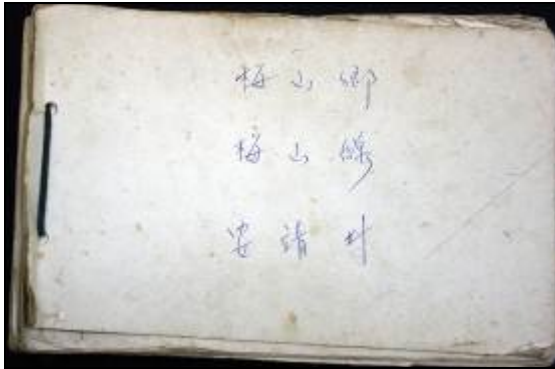 梅山鄉
梅山線
安靖村